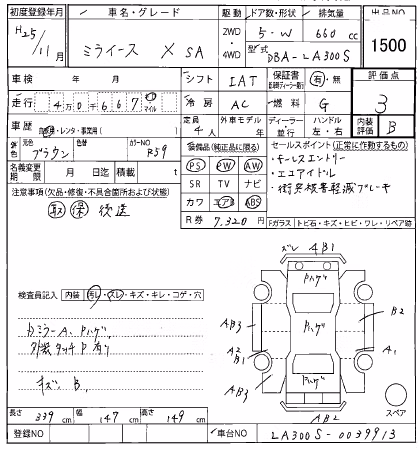 初度登録年月 車名・グレード 駆動 ドア数・形状 排気量 出品NO
H25/11月 ミライース X SA 2WD・4WD 5-W 660 cc 1500
型式 DBA-LA300S
車検 年 月 シフト IAT 保証書 有・無 評価点
走行 4万0千667 マイル 冷房 AC 燃料 G 3
車歴 自家・レンタ・事業用 定員 4人 外車モデル 年 ディーラー・並行 ハンドル 左・右 内装評価 B
元色 ブラウン 色替 カラーNO R59 装備品(純正品に限る) セールスポイント(正常に動作するもの)
名義変更期限 月 日迄 積載 t PS PW AW ・キーレスエントリー
注意事項(欠品・修復・不具合箇所および状態) SR TV ナビ ・エコアイドル
取 保 後送 カワ エアB ABS ・衝突被害軽減ブレーキ
R券 7,320円 Fガラス トビ石・キズ・ヒビ・ワレ・リペア跡
ズレ AB1
Pハゲ
検査員記入 内装 汚レ・スレ・キズ・キレ・コゲ・穴
AB3 Pハゲ B2
カミラーA、Pハゲ、
外装タッチP有り
A2 B1 A1
キズ、B、
AB3 Pハゲ
スペア
AB2
長さ 339cm 幅 147cm 高さ 149cm
登録NO 車台NO LA300S-0039913